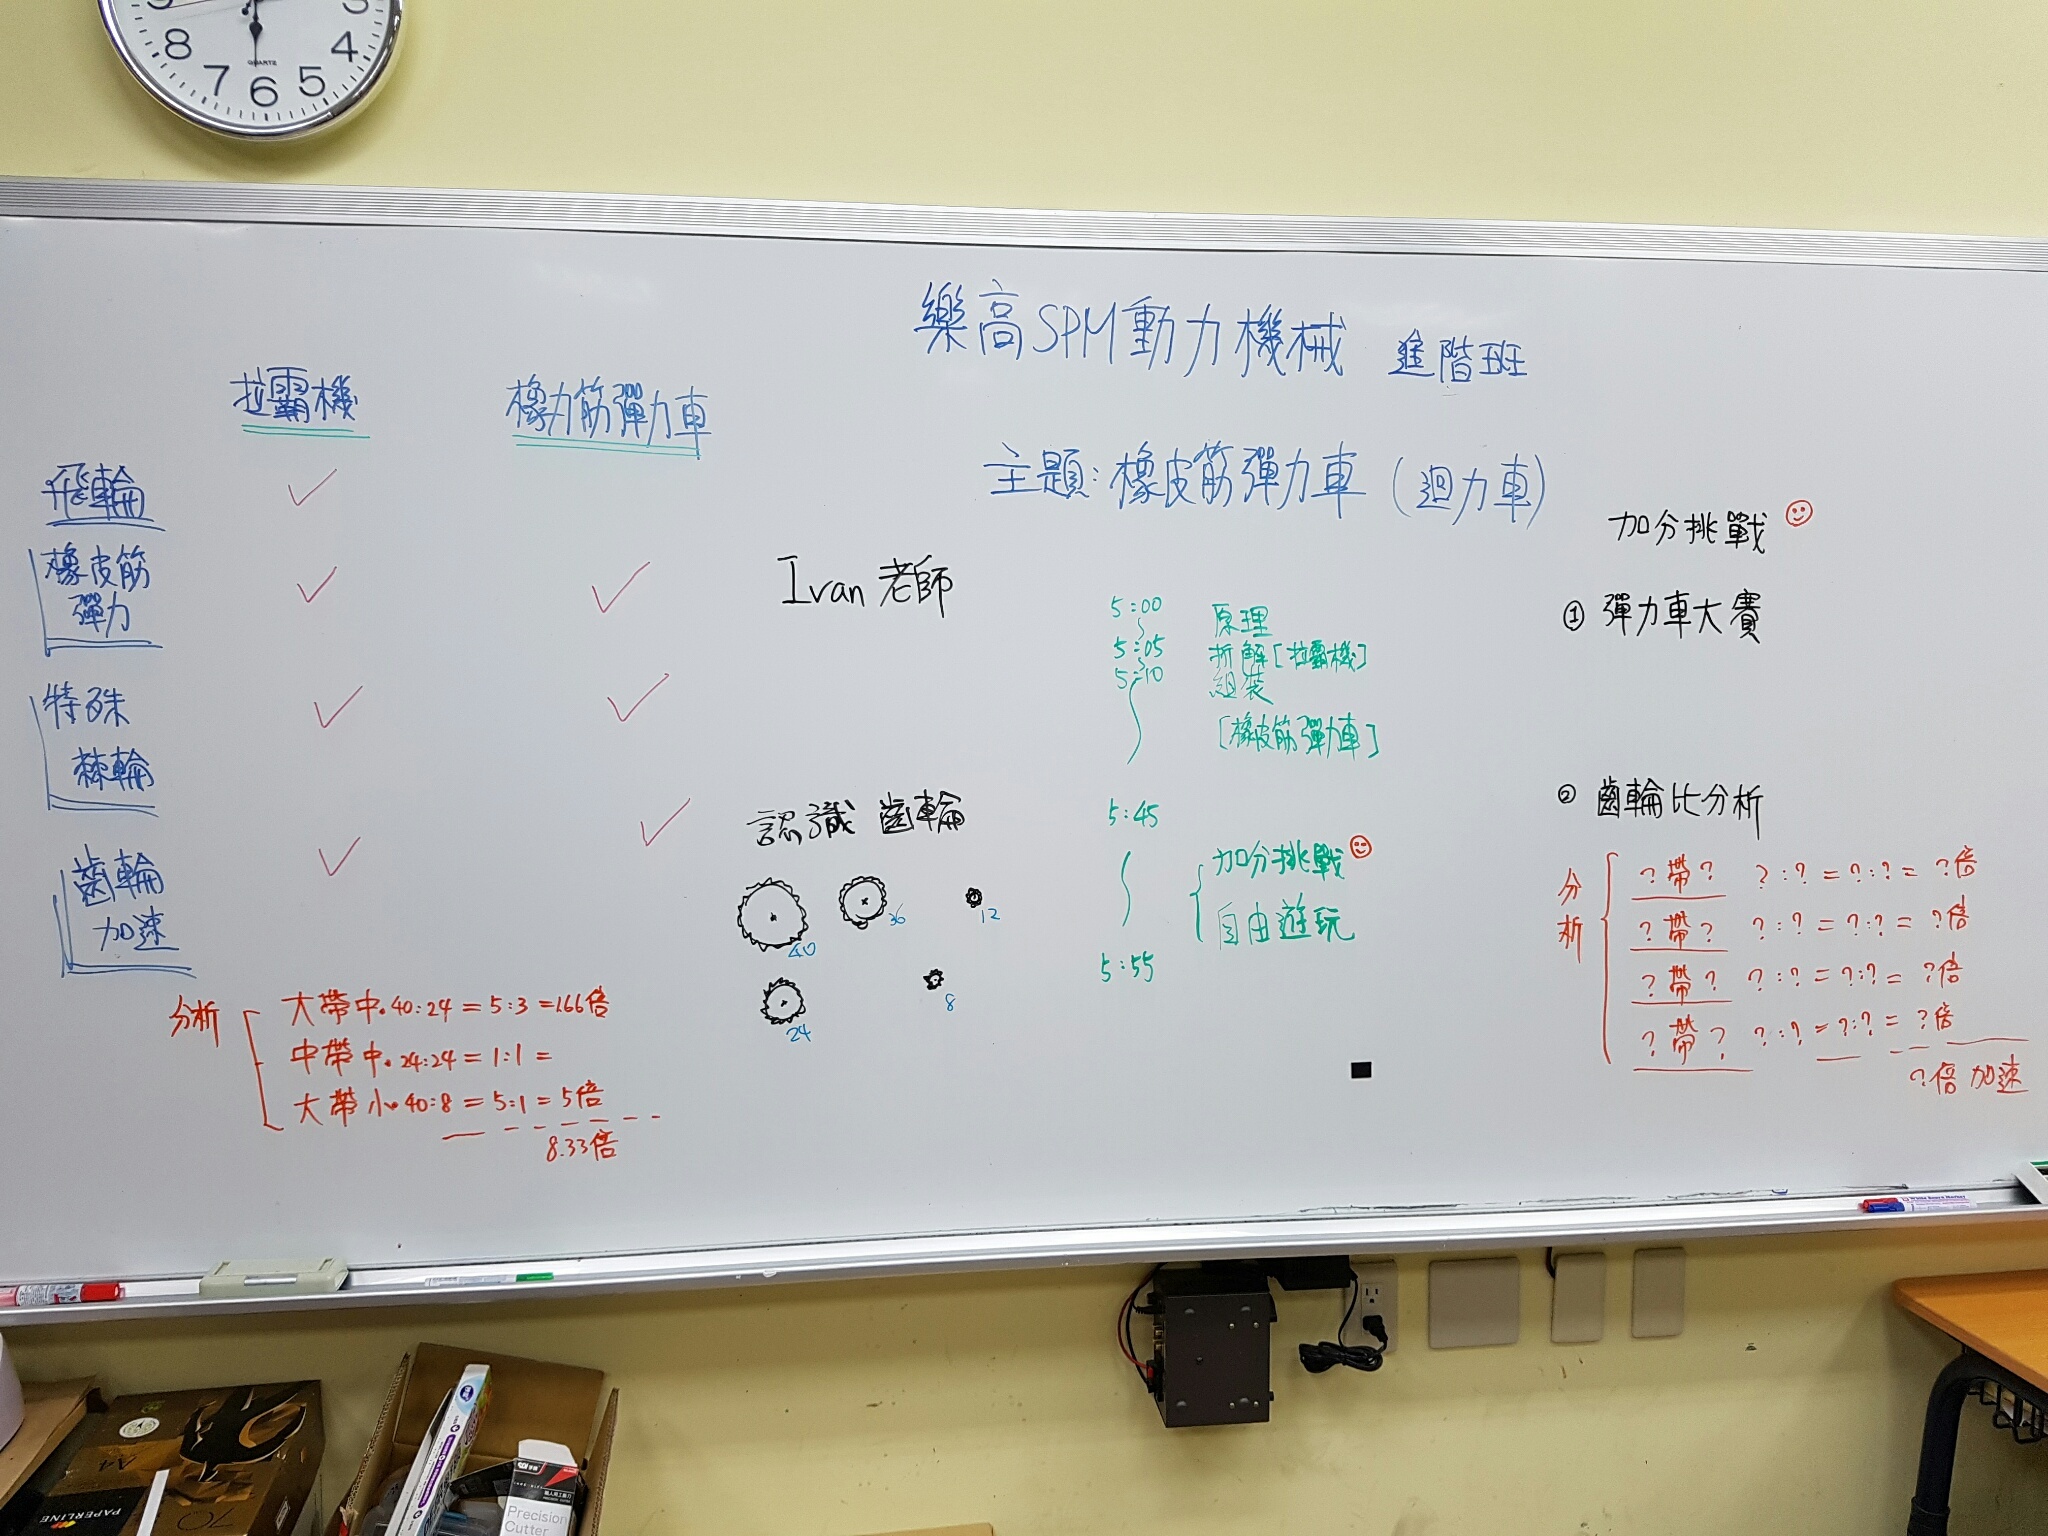 8
7
6
5
4
3
QUARTZ
樂高SPM動力機械 進階班
主題:橡皮筋彈力車(迴力車)
拉霸機
橡力筋彈力車
飛輪
橡皮筋
彈力
特殊
棘輪
齒輪
加速
分析
大帶中.40:24=5:3=1.66倍
中帶中.24:24=1:1=
大帶小.40:8=5:1=5倍
8.33倍
Ivan老師
認識 齒輪
40
36
12
24
8
5:00
5:05
5:10
原理
拆解[拉霸機]
組裝
[橡皮筋彈力車]
5:45
加分挑戰
自由遊玩
5:55
加分挑戰
① 彈力車大賽
② 齒輪比分析
分析
?帶? ?:?=?:?=?倍
?帶? ?:?=?:?=?倍
?帶? ?:?=?:?=?倍
?帶? ?:?=?:?=?倍
?倍加速
White Board Marker
A4
PAPERLINE
70
SDI
Precision
Cutter